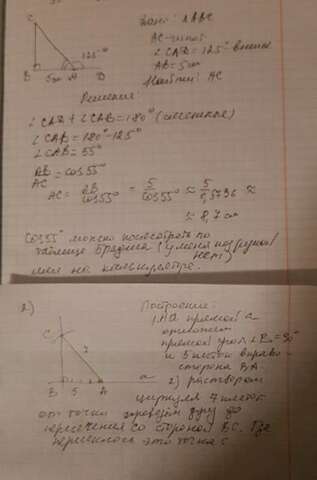 C
Дано: △ABC
AC-гипот.
∠CAD = 125° внешн
AB = 5см
Найти: AC
125°
B 5см A D
Решение:
∠CAD + ∠CAB = 180° (смежные)
∠CAB = 180° - 125°
∠CAB = 55°
AB/AC = cos55°
AC = AB/cos55° = 5/cos55° ≈ 5/0,5736 ≈
≈ 8,7 см
Cos55° можно посмотреть по
таблице Брадиса (у меня под рукой
нет)
или на калькуляторе.
2)
Построение:
1. На прямой a
отложим
прямой угол ∠B = 90°
и 5 клеток вправо
сторона BA.
2) раствором
циркуля 7 клеток
от точки A проведем дугу до
пересечения со стороной BC. Где
пересеклось это точка C
C
7
B 5 A a